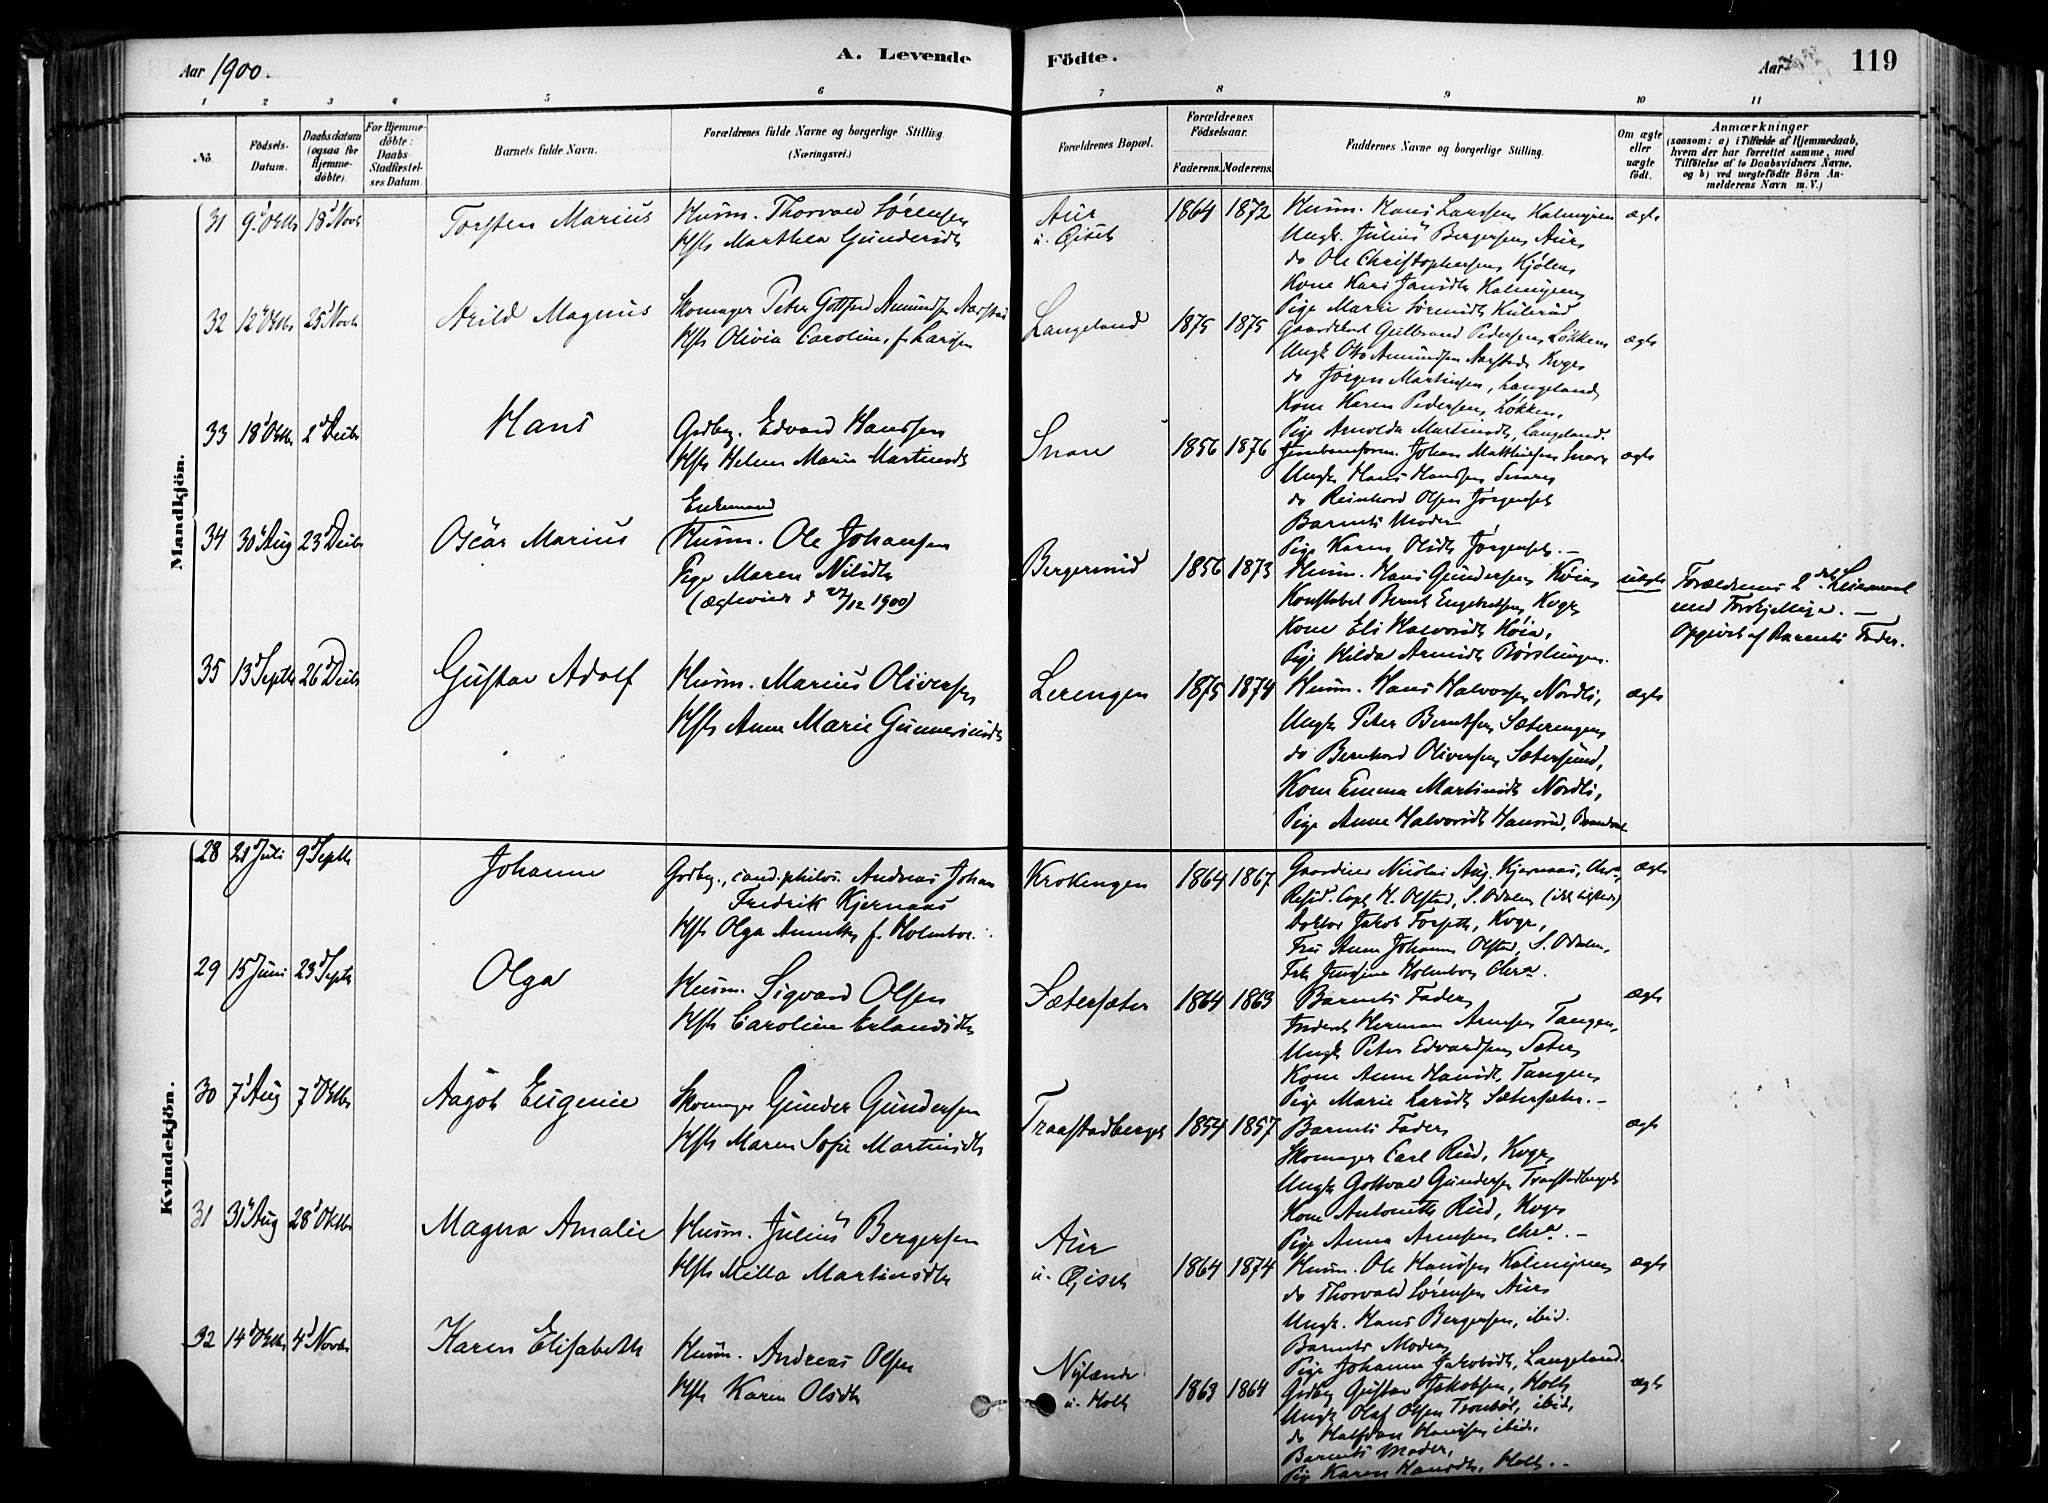 Aar 1900.
A. Levende
Födte.
Aar
119
1 2 3 4 5 6 7 8 9 10 11
No.
Födsels-Datum.
Daabsdatum (ogsaa for Hjemme-döbte).
For Hjemme-döbte: Daabs-Stadfæstel-ses Datum
Barnets fulde Navn.
Forældrenes fulde Navne og borgerlige Stilling.
(Næringsvei.)
Forældrenes Bopæl.
Forældrenes Födselsaar.
Faderens. Moderens.
Faddernes Navne og borgerlige Stilling.
Om ægte eller uægte födt.
Anmærkninger
(saasom: a) i Tilfælde af Hjemmedaab, hvem der har forrettet samme, med Tilföielse af to Daabsvidners Navne. og b) ved uægtefödte Börn An-melderens Navn m.V.)
Mandkjön.
31 9. Oktb 18 Novb Torsten Marius
Husm. Thorvald Sörensen
Hst Marthea Gundersdt
Aur
u. Gjset
1864 1872
Husm. Hans Larssen Kalmyren
Ungk. Julius Bergersen Aur
do Ole Christophersen Kjölen
Kone Kari Jansdt Kalmyren
Pige Marie Sörensdt Kulerud
ægte
32 12 Oktb 25 Novb Arild Magnus
Skomager Peter Gottfred Amundsen Aarstad
Hst Olivia Caroline, f. Larsen
Langeland
1875 1875
Gulbrand Pedersen Løkken
Ungk Otto Amundsen Aarstad Kvgr
do Jörgen Martinsen, Langeland
Kone Karen Pedersen, Løkken,
Pige Arnolda Martinsdt, Langeland.
ægte
33 18 Oktb 2 Decbr Hans
Gdbr. Edvard Hanssen
Hst Helene Marie Martinsdt
Snare
1856 1876
Johan Matthisen Snare
Ungk Hans Hanssen Snare
do Reinhard Olsen Jörgenset
Barnets Moder
Pige Karen Olsdt Jörgenset. -
ægte
34 30 Aug 23 Decbr Oscar Marius
Enkemand
Husm. Ole Johansen
Pige Maren Nilsdt
(Ægteviede d 27/12 1900)
Bergersrud
1856 1873
Husm. Hans Gundersen Høia
Konstabel Bernt Engebretsen Kvgr
Kone Eli Halvorsdt Høia,
Pige Hilda Arnesdt Börslungen.
uægte
Forældrenes 2det Leiermaal
med Forskjellige. -
Opgivet af Barnets Fader.
35 13 Septb 26 Decbr Gustav Adolf
Husm. Marius Oliversen
Hst Anne Marie Gunneriusdt
Lerengen
1875 1874
Husm. Hans Halvorsen Nordli,
Ungk Peter Berntsen Sæterengen
do Bernhard Oliversen Sætersund,
Kone Emma Martinsdt Nordli,
Pige Anne Halvorsdt Hansrud, Brandval
ægte
Kvindekjön.
28 21 Juli 9 Septb Johanne
Gdbr., cand. philos. Andreas Johan
Fredrik Kjernaas
Hst Olga Annette f. Holmboe.
Krokengen
1864 1867
Gaardeier Nicolai Aug. Kjernaas, Chra,
Resid. Capl. H. Olstad, S. Odalen (ikke tilstede)
Doktor Jakob Forseth, Kvgr,
Fru Anna Johanne Olstad, S. Odalen,
Frk Jensine Holmboe Chra.
ægte
29 15 Juni 23 Septb Olga
Husm. Sigvard Olsen
Hst Caroline Erlandsdt
Sætersæter
1864 1863
Barnets Fader
Inderst Herman Arnesen Tangen,
Ungk Peter Edvardsen Sæter
Kone Anne Hansdt, Tangen
Pige Marie Larsdt Sætersæter. -
ægte
30 7 Aug 7 Oktb Aagot Eugenie
Skomager Gunder Gundersen
Hst Maren Sofie Martinsdt
Traastadberget
1854 1857
Barnets Fader
Skomager Carl Rud, Kvgr
Ungk Gottvald Gundersen Traastadberget
Kone Antonette Rud, Kvgr
Pige Anna Arnesen Chra. -
ægte
31 31 Aug 28 Oktb Magna Amalie
Husm. Julius Bergersen
Hst Milla Martinsdt
Aur
u. Gjset
1864 1874
Husm. Ole Hanssen Kalmyren
do Thorvald Sörensen Aur
Ungk. Hans Bergersen, ibid.
Barnets Moder
Pige Johanne Jakobsdt, Langeland.
ægte
32 14 Oktb 4 Novb Karen Elisabeth
Husm. Andreas Olsen
Hst Karen Olsdt
Nylænde
u. Holt
1863 1864
Gdbr Gustav Jakobsen, Holt
Ungk Olaf Olsen Tronböl, ibid,
do Halfdan Hanssen ibid.
Barnets Moder,
Pige Karen Hansdt, Holt. -
ægte